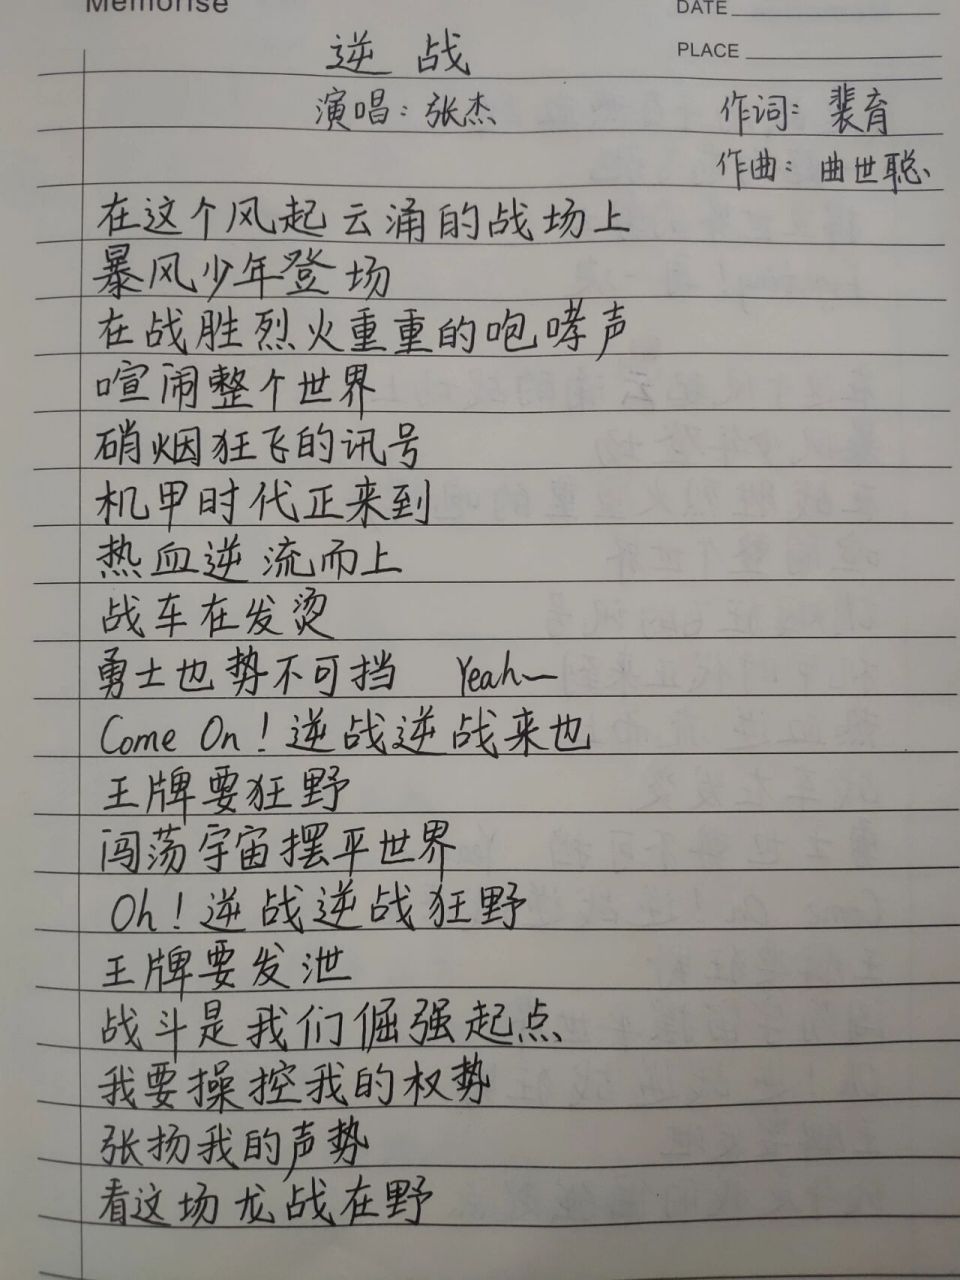 Memorise
DATE
PLACE
逆战
演唱：张杰
作词：裴育
作曲：曲世聪
在这个风起云涌的战场上
暴风少年登场
在战胜烈火重重的咆哮声
喧闹整个世界
硝烟狂飞的讯号
机甲时代正来到
热血逆流而上
战车在发烫
勇士也势不可挡 Yeah~
Come On！逆战逆战来也
王牌要狂野
闯荡宇宙摆平世界
Oh！逆战逆战狂野
王牌要发泄
战斗是我们倔强起点
我要操控我的权势
张扬我的声势
看这场龙战在野